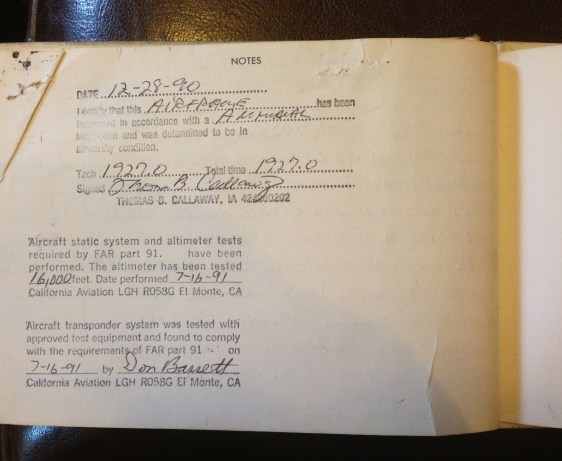 NOTES
DATE 12-28-90
I certify that this AIRFRAME has been
inspected in accordance with a ANNUAL
inspection and was determined to be in
airworthy condition.
Tach 1927.0 Total time 1927.0
Signed Thomas B Callaway
THOMAS B. CALLAWAY, IA
Aircraft static system and altimeter tests
required by FAR part 91. have been
performed. The altimeter has been tested
16,000 feet. Date performed 7-16-91
California Aviation LGH R058G El Monte, CA
Aircraft transponder system was tested with
approved test equipment and found to comply
with the requirements of FAR part 91 on
7-16-91 by Don Bassett
California Aviation LGH R058G El Monte, CA